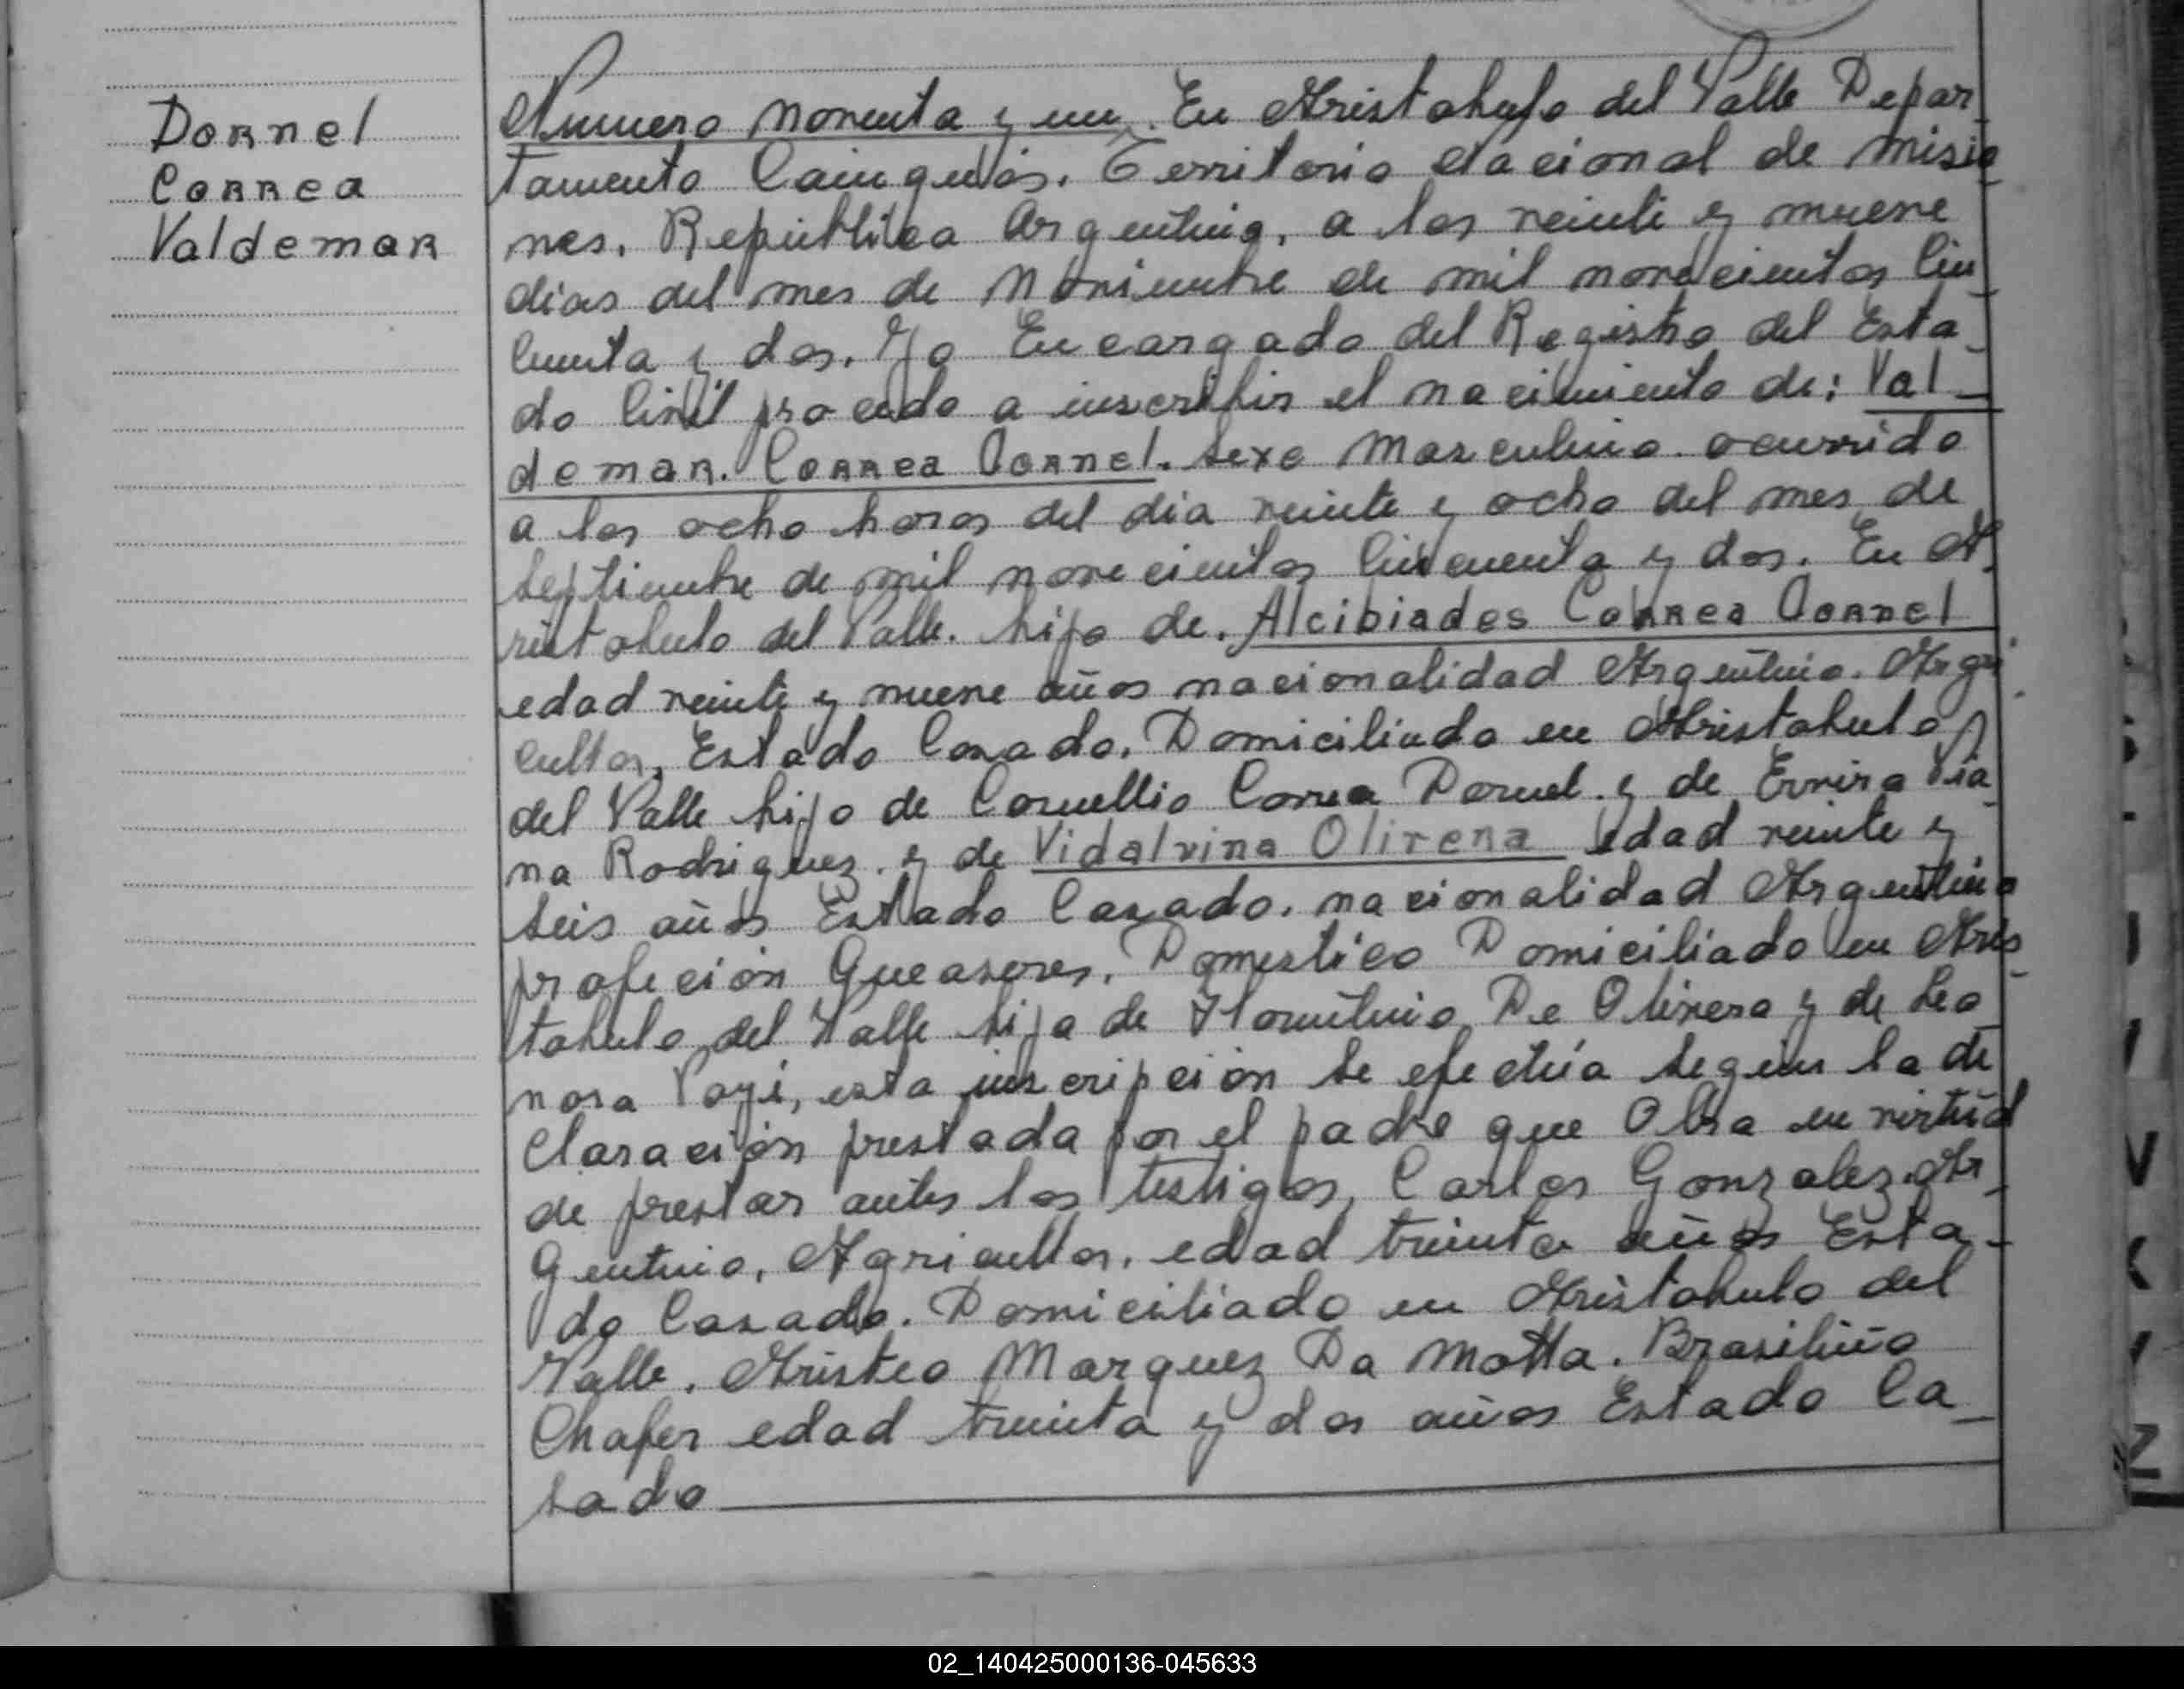 Dornel
Correa
Valdemar
Numero noventa y un. En Aristobulo del Valle Depar
tamento Cainguás. Territorio Nacional de Misio
nes. República Argentina, a los veinti y nueve
dias del mes de Noviembre de mil novecientos Cin
cuenta y dos. Yo Encargado del Registro del Esta
do Civil procedo a inscribir el nacimiento de: Val_
demar. Correa Dornel. Sexo Masculino. ocurrido
a las ocho horas del dia veinte y ocho del mes de
Septiembre de mil novecientos Cincuenta y dos. En A
ristobulo del Valle. hijo de. Alcibiades Correa Dornel
edad veinti y nueve años nacionalidad Argentino. Agri
cultor, Estado Casado. Domiciliado en Aristobulo
del Valle hijo de Cornellio Correa Dornel. y de Ervira Via
na Rodriguez. y de Vidalvina Olivera edad veinte y
seis años Estado Casado. nacionalidad Argentino
profeción Queaseres. Domestico Domiciliado en Aris
tobulo del Valle hija de Florintino De Olivera y de Leo
nora esta inscripción se efectúa según la de
claración prestada por el padre que Obra en virtúd
de prestar antes los testigos, Carlos Gonzalez. Ar
gentino, Agricultor, edad treinta años Esta_
do Casado. Domiciliado en Aristobulo del
Valle. Aristeo Marquez Da Motta. Brasiliño
Chofer edad treinta y dos años Estado Ca_
sado
02_140425000136-045633